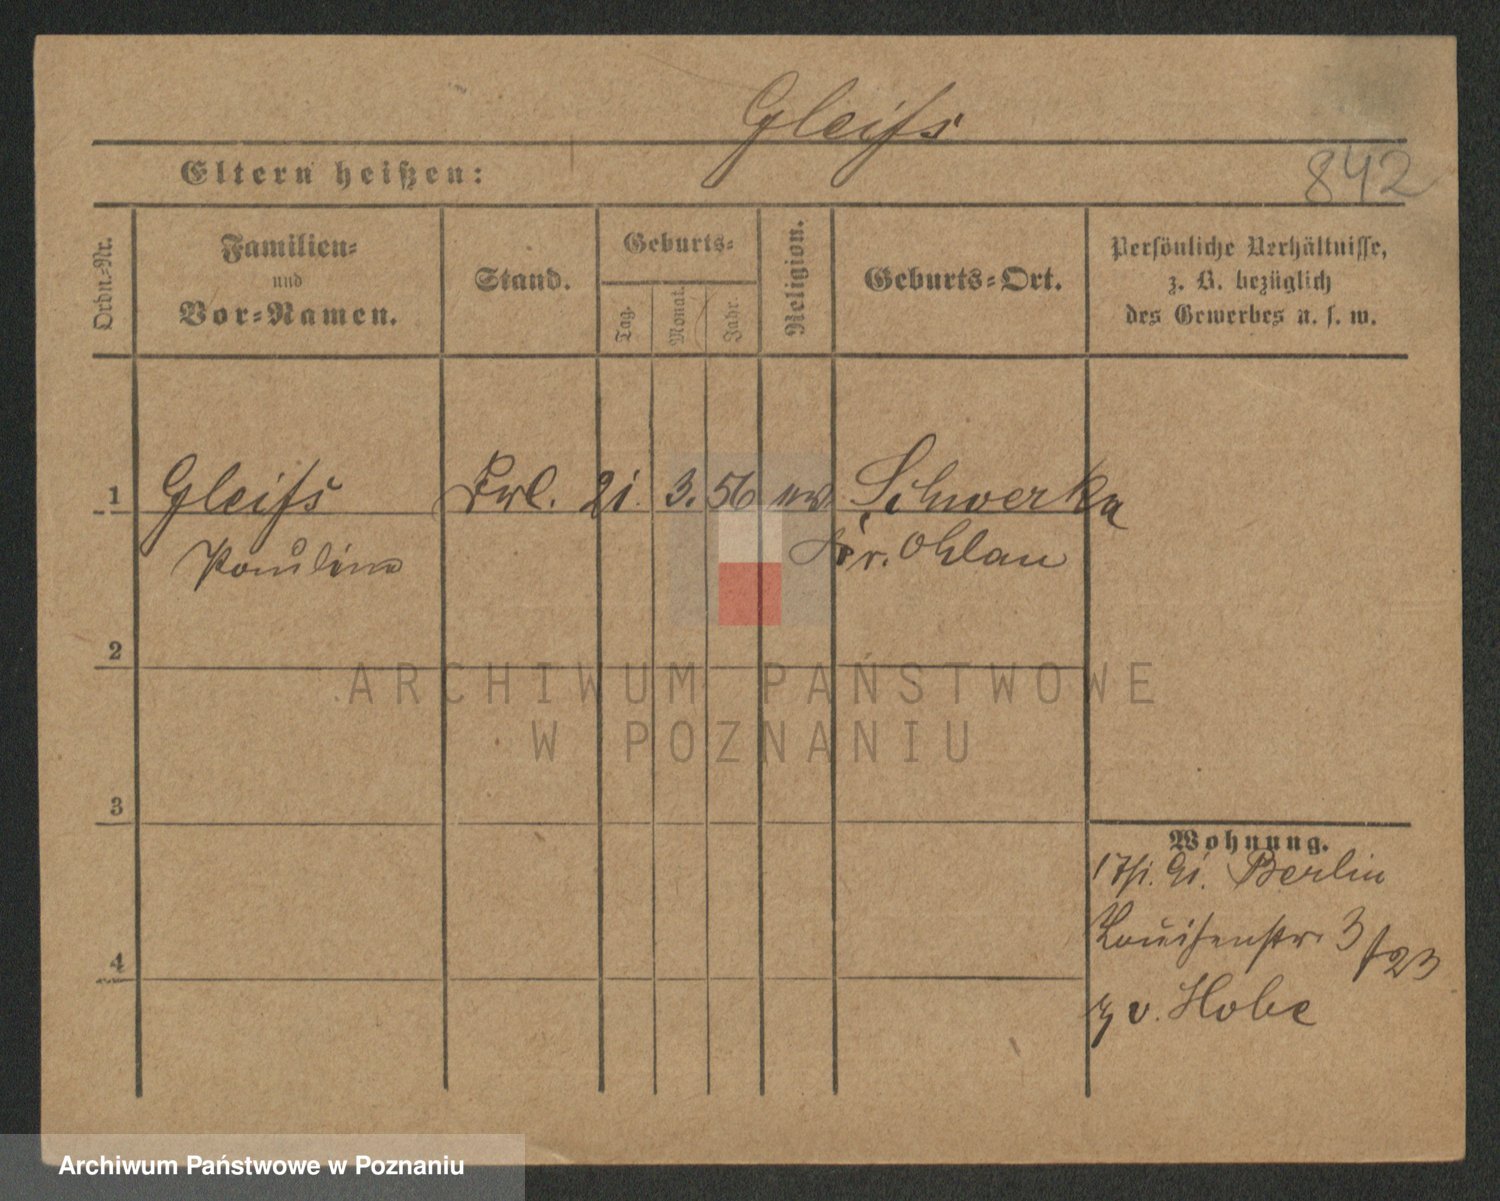 Gleiſs
Eltern heißen:
842
Ordn.-Nr.
Familien-
und
Vor-Namen.
Stand.
Geburts-
Tag.
Monat.
Jahr.
Religion.
Geburts-Ort.
Persönliche Verhältnisse,
z. B. bezüglich
des Gewerbes u. s. w.
1 Gleiſs Frl. 21. 3. 56 ev Schwerka
Pauline Kr. Ohlau
2
ARCHIWUM PAŃSTWOWE
W POZNANIU
3
Wohnung.
Berlin
4
Louisenstr. 3
/23
v. Hobe
Archiwum Państwowe w Poznaniu